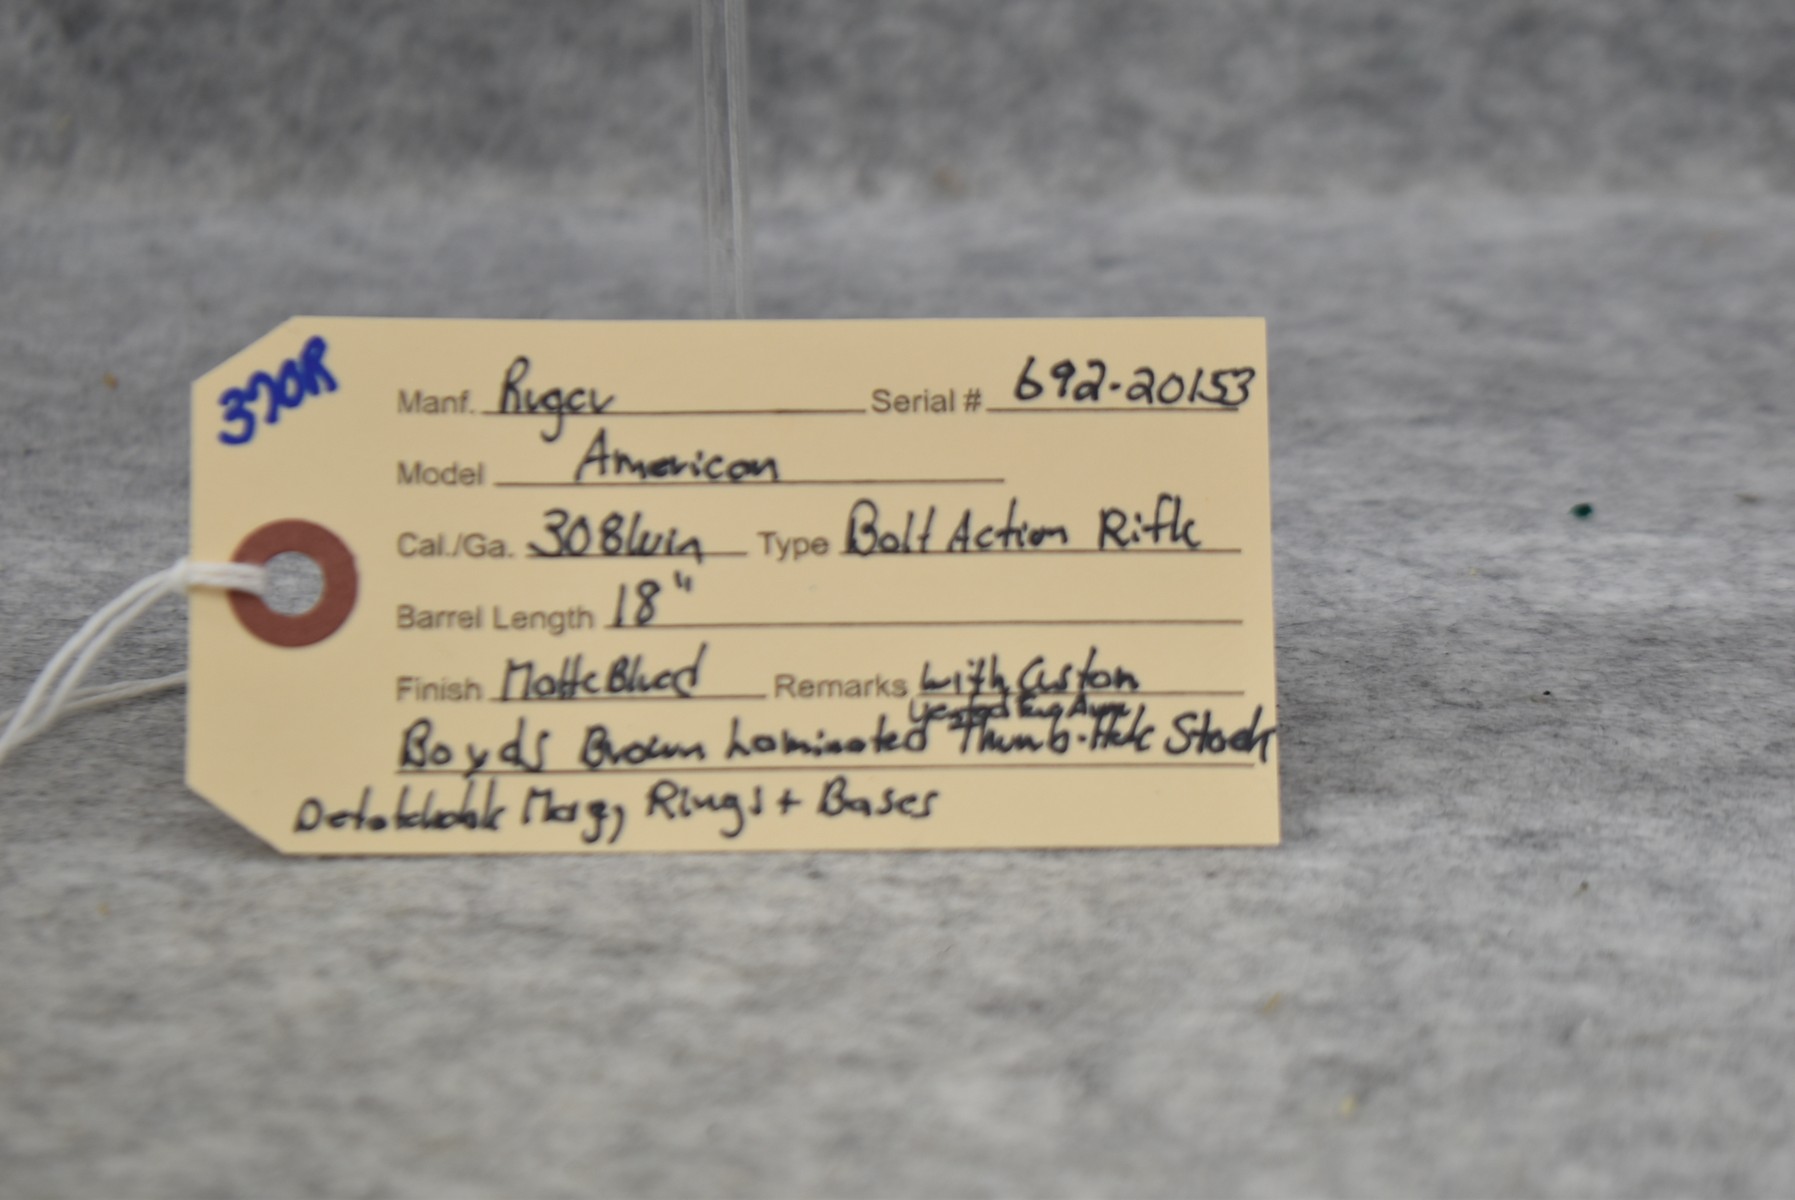 370R
Manf. Ruger Serial # 692-20153
Model American
Cal./Ga. 308 Win Type Bolt Action Rifle
Barrel Length 18"
Finish Matte Blued Remarks with Custom
Boyds Brown Laminated Thumb-Hole Stock
Detatchable Mag, Rings + Bases